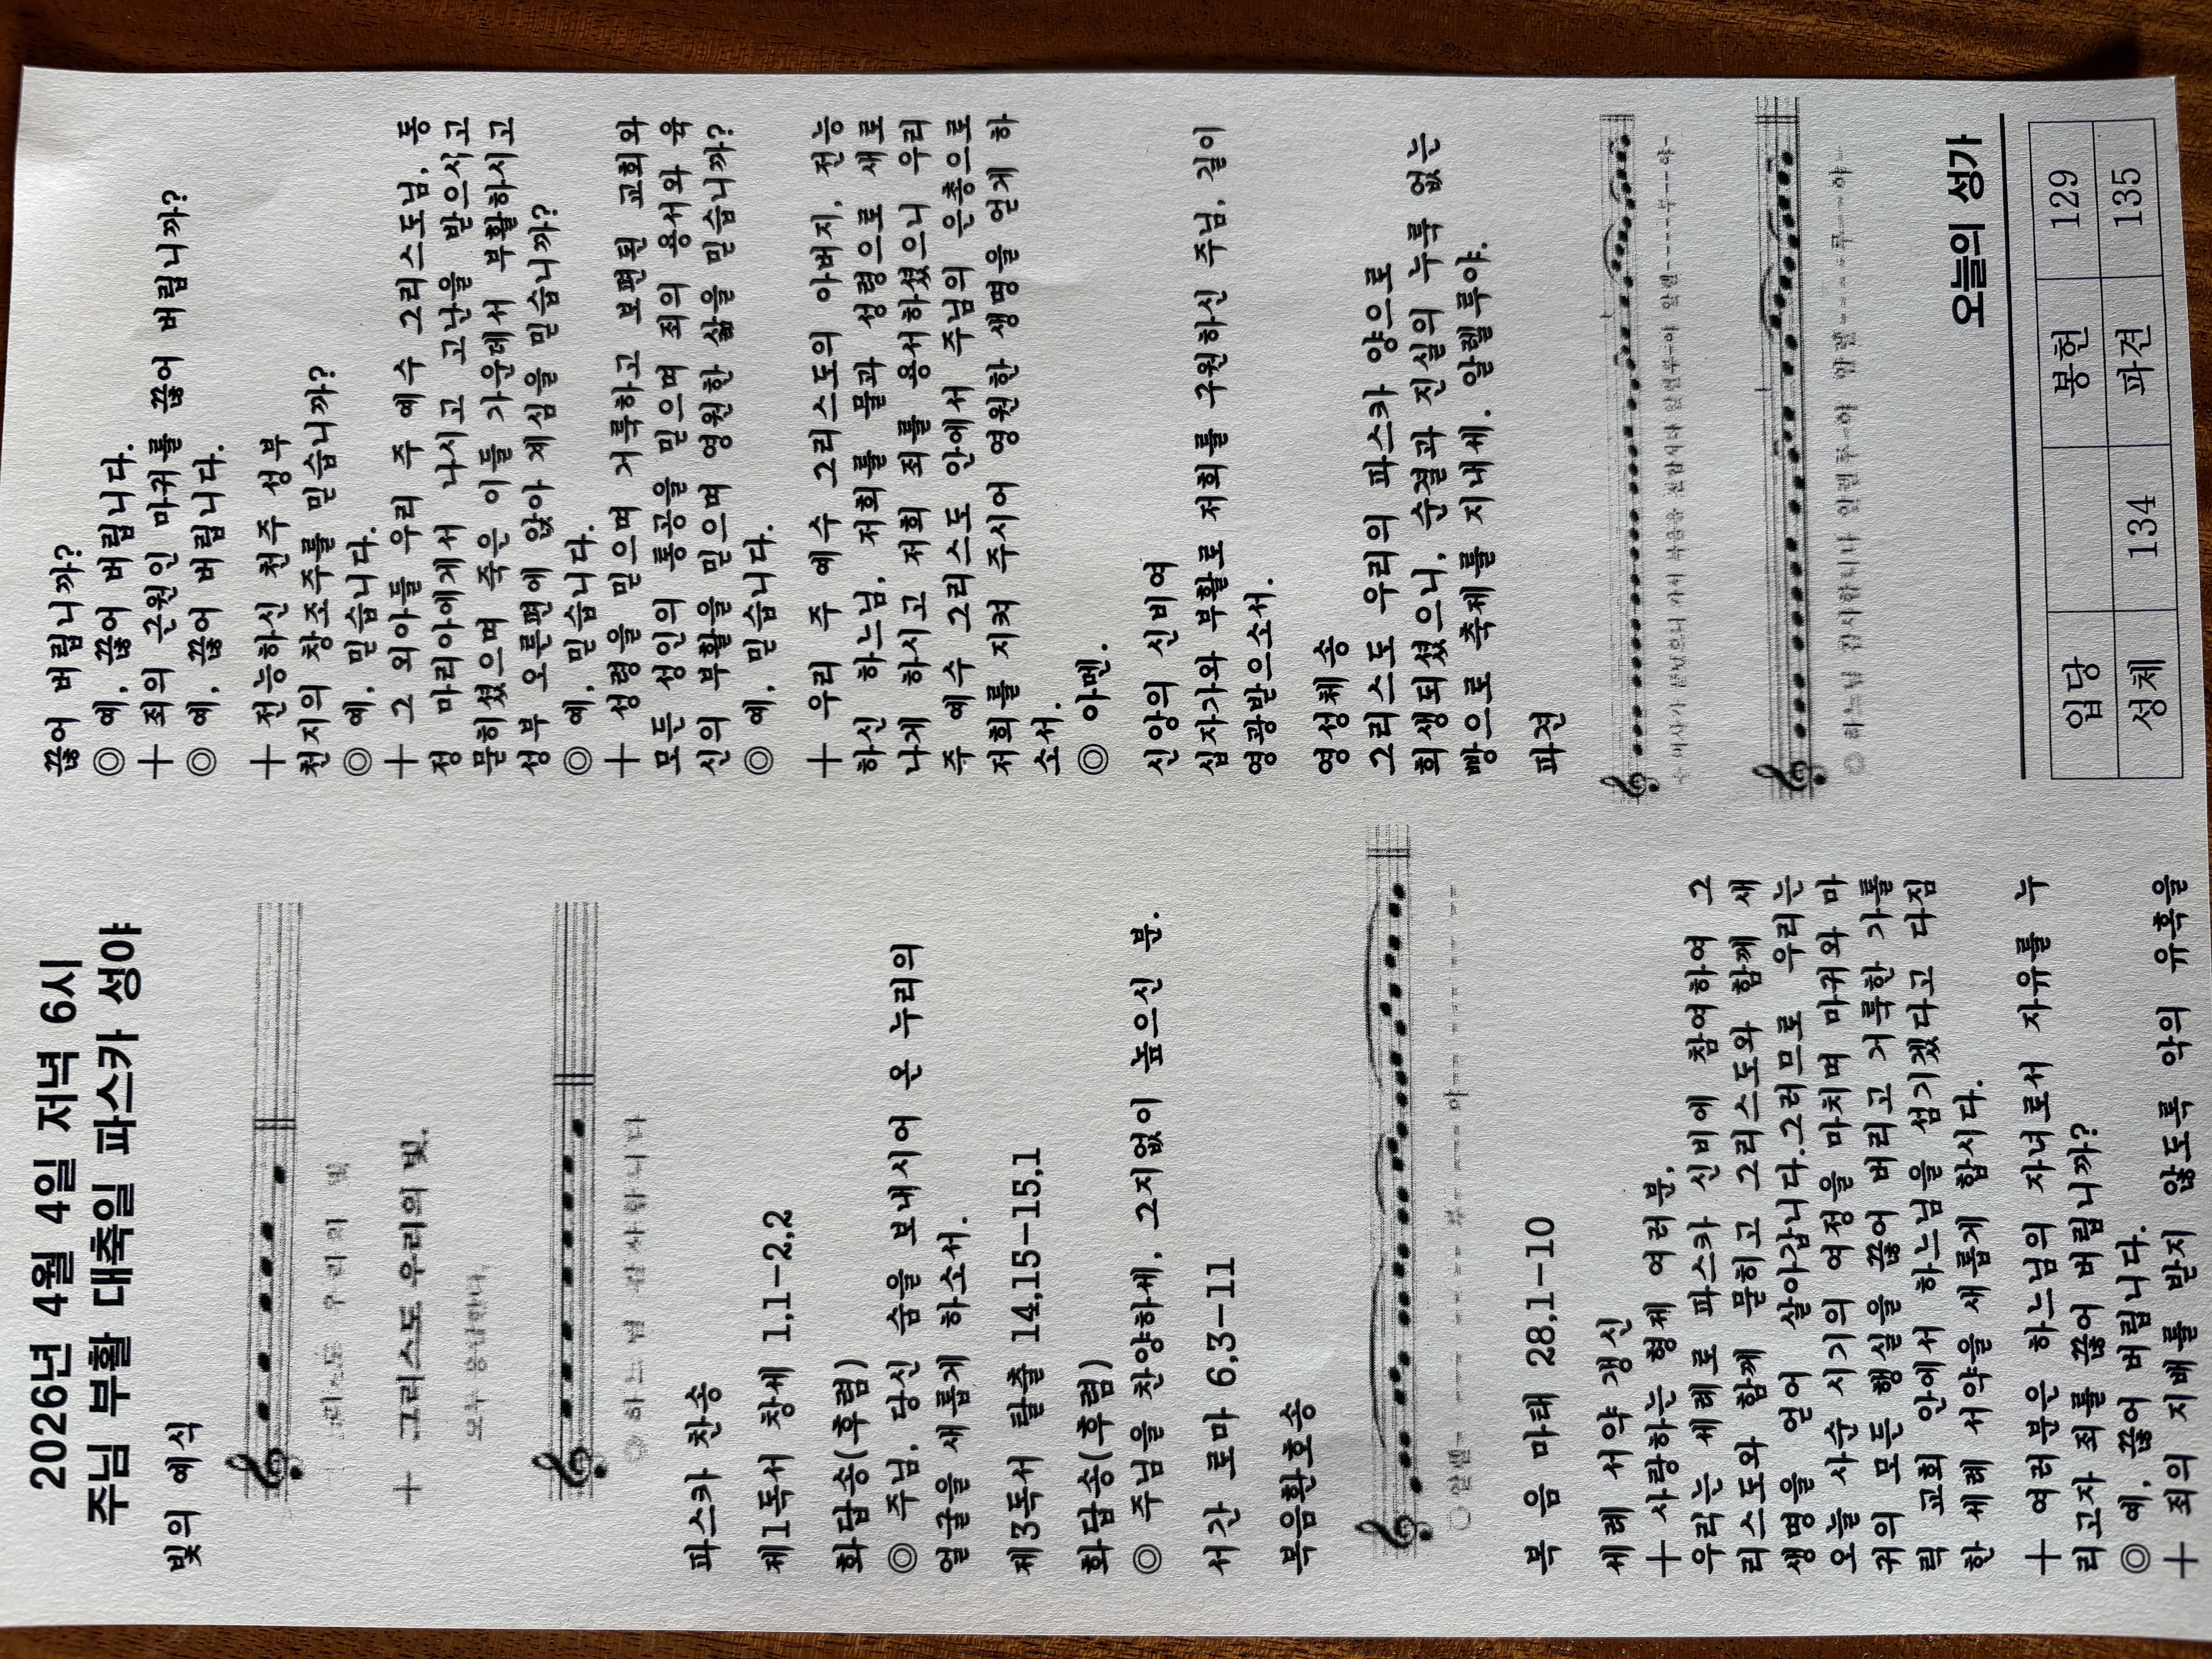 2026년 4월 4일 저녁 6시
주님 부활 대축일 파스카 성야
빛의 예식
우리의 빛
+ 그리스도 우리의 빛.
모두 응답한다.
◎ 하느님 감사합니다
파스카 찬송
제1독서 창세 1,1-2,2
화답송(후렴)
◎ 주님, 당신 숨을 보내시어 온 누리의
얼굴을 새롭게 하소서.
제3독서 탈출 14,15-15,1
화답송(후렴)
◎ 주님을 찬양하세, 그지없이 높으신 분.
서간 로마 6,3-11
복음환호송
◎ 알렐- --- --- 루- --- 야- --- ---
복 음 마태 28,1-10
세례 서약 갱신
+ 사랑하는 형제 여러분,
우리는 세례로 파스카 신비에 참여하여 그
리스도와 함께 묻히고 그리스도와 함께 새
생명을 얻어 살아갑니다.그러므로 우리는
오늘 사순 시기의 여정을 마치며 마귀와 마
귀의 모든 행실을 끊어 버리고 거룩한 가톨
릭 교회 안에서 하느님을 섬기겠다고 다짐
한 세례 서약을 새롭게 합시다.
+ 여러분은 하느님의 자녀로서 자유를 누
리고자 죄를 끊어 버립니까?
◎ 예, 끊어 버립니다.
+ 죄의 지배를 받지 않도록 악의 유혹을
끊어 버립니까?
◎ 예, 끊어 버립니다.
+ 죄의 근원인 마귀를 끊어 버립니까?
◎ 예, 끊어 버립니다.
+ 전능하신 천주 성부
천지의 창조주를 믿습니까?
◎ 예, 믿습니다.
+ 그 외아들 우리 주 예수 그리스도님, 동
정 마리아에게서 나시고 고난을 받으시고
묻히셨으며 죽은 이들 가운데서 부활하시고
성부 오른편에 앉아 계심을 믿습니까?
◎ 예, 믿습니다.
+ 성령을 믿으며 거룩하고 보편된 교회와
모든 성인의 통공을 믿으며 죄의 용서와 육
신의 부활을 믿으며 영원한 삶을 믿습니까?
◎ 예, 믿습니다.
+ 우리 주 예수 그리스도의 아버지, 전능
하신 하느님, 저희를 물과 성령으로 새로
나게 하시고 저희 죄를 용서하셨으니 우리
주 예수 그리스도 안에서 주님의 은총으로
저희를 지켜 주시어 영원한 생명을 얻게 하
소서.
◎ 아멘.
신앙의 신비여
십자가와 부활로 저희를 구원하신 주님, 길이
영광받으소서.
영성체송
그리스도 우리의 파스카 양으로
희생되셨으니, 순결과 진실의 누룩 없는
빵으로 축제를 지내세. 알렐루야.
파견
+ 미사가 끝났으니 가서 복음을 전합시다 알렐루-야 알렐-----루--야-
◎ 하느님 감사합니다 알렐루-야 알렐-----루----야-
오늘의 성가
입당 봉헌 129
성체 134 파견 135